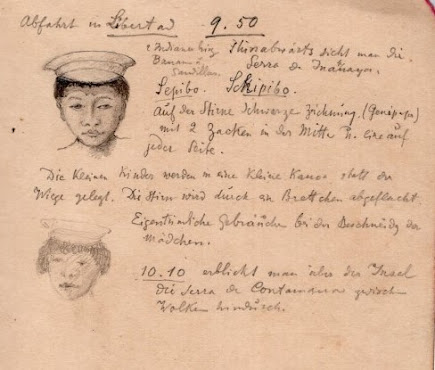 Abfahrt in Libertad 9.50
2 Indianer
Flussabwärts sieht man die
Serra de
Sepibo. Schipibo.
auf der Stirne schwarze Zeichnung (Genipapo)
mit 2 Zacken in der Mitte u. eine auf
jeder Seite.
Die kleinen Kinder werden in eine kleine Kanoe statt der
Wiege gelegt. Die Stirn wird durch ein Brettchen abgeflacht.
Eigentümliche Gebräuche bei der Beschneidg der
Mädchen.
10.10 erblickt man über der Insel
die Serra de Contamana zwisch
Wolken hindurch.